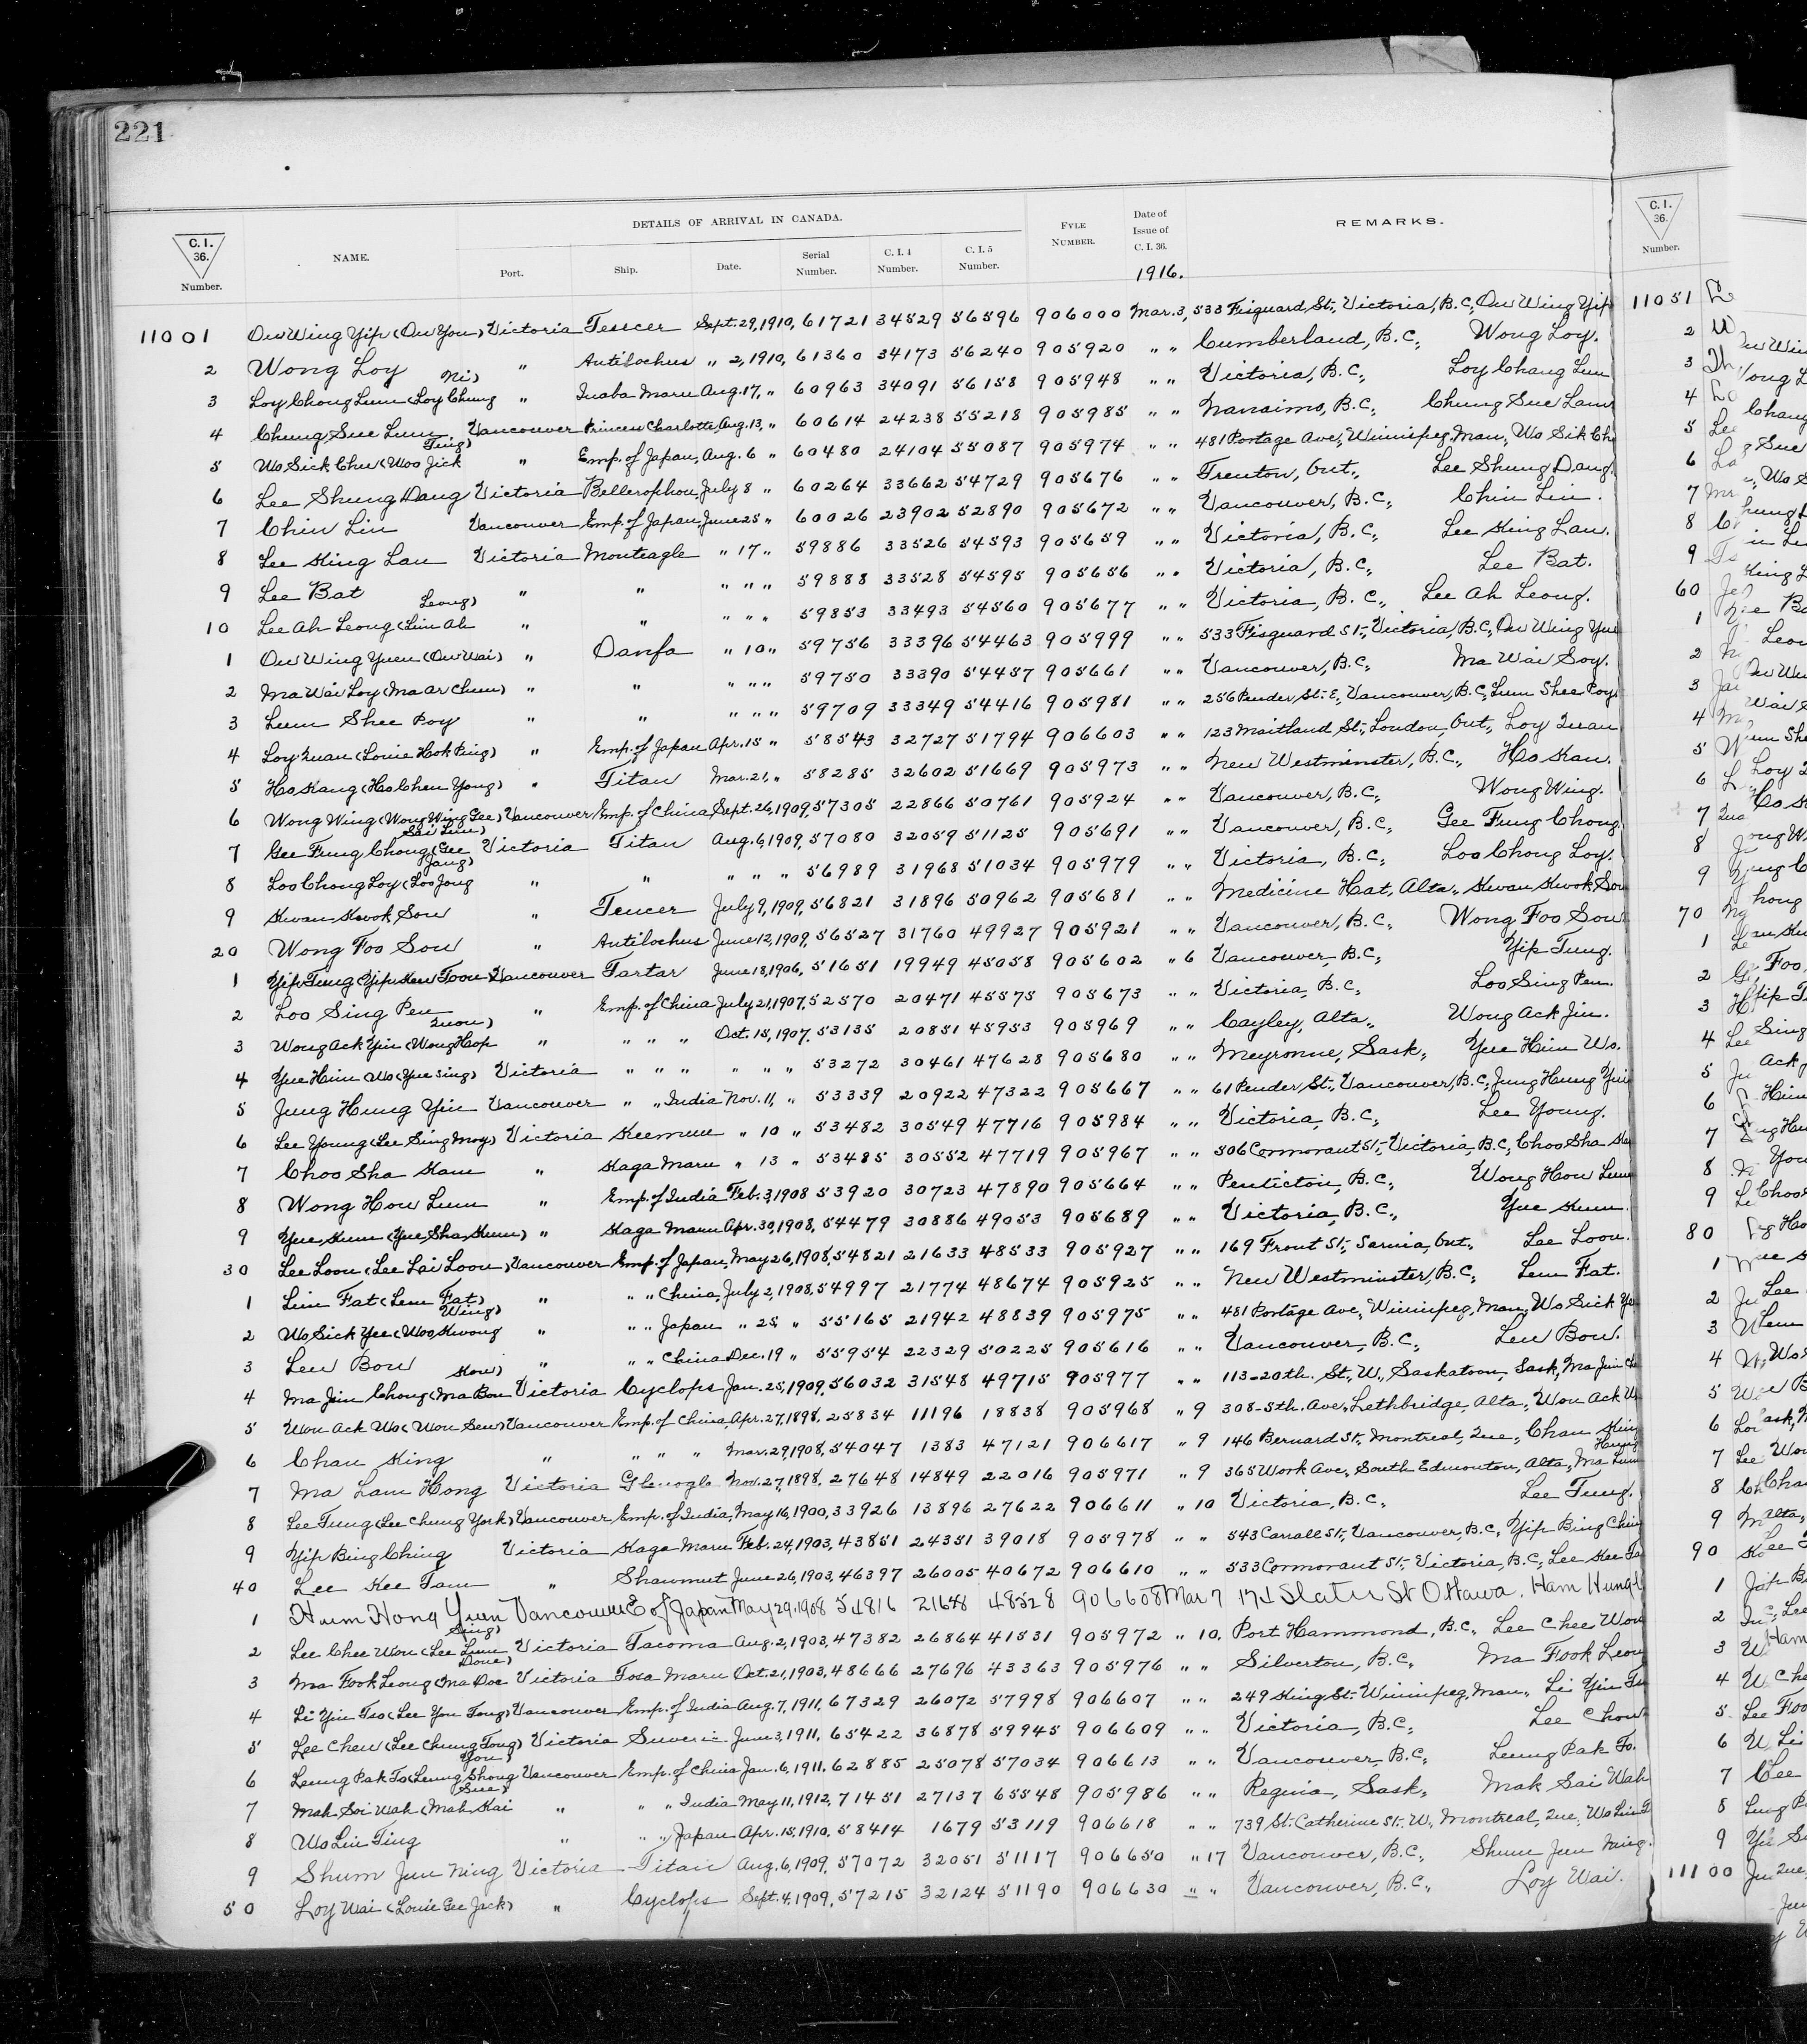 221
DETAILS OF ARRIVAL IN CANADA.
C.I. 36. Number. NAME. Port. Ship. Date. Serial Number. C.I. 4 Number. C.I. 5 Number. FYLE NUMBER. Date of Issue of C.I. 36. 1916. REMARKS. C.I. 36. Number.
11001 Ow Wing Yip (Ow You) Victoria Teucer Sept. 29, 1910, 61721 34529 56596 906000 Mar. 3, 533 Fisguard St., Victoria, B.C., Ow Wing Yip 11051
2 Wong Loy " Antilochus " 2, 1910, 61360 34173 56240 905920 " " Cumberland, B.C., Wong Loy.
3 Loy Chong Lum (Loy Chung Ni) " Inaba Maru Aug. 17, " 60963 34091 56158 905948 " " Victoria, B.C., Loy Chang Lum
4 Chung Sue Lum Vancouver Princess Charlotte, Aug. 13, " 60614 24238 55218 905985 " " Nanaimo, B.C., Chung Sue Lam
5 Wo Sick Chu (Woo Jick Ting) " Emp. of Japan, Aug. 6 " 60480 24104 55087 905974 " " 481 Portage Ave., Winnipeg, Man., Wo Sik Ch
6 Lee Shung Dang Victoria Bellerophon, July 8 " 60264 33662 54729 905676 " " Trenton, Ont., Lee Shung Dang.
7 Chin Lin Vancouver Emp. of Japan, June 25 " 60026 23902 52890 905672 " " Vancouver, B.C., Chin Lin.
8 Lee King Lau Victoria Monteagle " 17 " 59886 33526 54593 905659 " " Victoria, B.C., Lee King Lau.
9 Lee Bat " " " " " 59888 33528 54595 905656 " " Victoria, B.C., Lee Bat.
10 Lee Ah Leong (Lim Ah Leong) " " " " " 59853 33493 54560 905677 " " Victoria, B.C., Lee Ah Leong.
1 Ow Wing Yuen (Ow Wai) " Oanfa " 10 " 59756 33396 54463 905999 " " 533 Fisguard St., Victoria, B.C., Ow Wing Yue
2 Ma Wai Loy (Ma Ar Chuu) " " " " " 59750 33390 54457 905661 " " Vancouver, B.C., Ma Wai Soy.
3 Lum Shee Poy " " " " " 59709 33349 54416 905981 " " 256 Pender St. E., Vancouver, B.C., Lum Shee Poy
4 Loy Quan (Louie Hok Ping) " Emp. of Japan Apr. 15 " 58543 32727 51794 906603 " " 123 Maitland St., London, Ont., Loy Quan
5 Ho Kang (Ho Chen Yong) " Titan Mar. 21, " 58285 32602 51669 905973 " " New Westminster, B.C., Ho Kan.
6 Wong Wing (Wong Wing Gee) Vancouver Emp. of China, Sept. 26, 1909, 57305 22866 50761 905924 " " Vancouver, B.C., Wong Wing.
7 Gee Fung Chong (Gee Sai Lum) Victoria Titan Aug. 6, 1909, 57080 32059 51125 905691 " " Vancouver, B.C., Gee Fung Chong
8 Loo Chong Loy (Loo Jong Jang) " " " " " 56989 31968 51034 905979 " " Victoria, B.C., Loo Chong Loy.
9 Kwan Kwok Sou " Teucer July 9, 1909, 56821 31896 50962 905681 " " Medicine Hat, Alta., Kwan Kwok Sou
20 Wong Foo Sou " Antilochus June 12, 1909, 56527 31760 49927 905921 " " Vancouver, B.C., Wong Foo Sou 70
1 Yip Tung (Yip Kew Toon) Vancouver Tartar June 18, 1906, 51651 19949 45058 905602 " 6 Vancouver, B.C., Yip Tung.
2 Loo Sing Pen " Emp. of China July 21, 1907, 52570 20471 45575 905673 " " Victoria, B.C., Loo Sing Pen.
3 Wong Ack Yin (Wong Hop Quon) " " " " Oct. 15, 1907, 53135 20851 45953 905969 " " Cayley, Alta., Wong Ack Jin.
4 Yue Him Wo (Yue Sing) Victoria " " " " " " 53272 30461 47628 905680 " " Meyronne, Sask., Yue Him Wo.
5 Jung Hung Yin Vancouver " " India Nov. 11, " 53339 20922 47322 905667 " " 61 Pender St., Vancouver, B.C., Jung Hung Yin
6 Lee Young (Lee Sing Moy) Victoria Keemun " 10 " 53482 30549 47716 905984 " " Victoria, B.C., Lee Young.
7 Choo Sha Kam " Kaga Maru " 13 " 53485 30552 47719 905967 " " 506 Cormorant St., Victoria, B.C., Choo Sha Ka
8 Wong How Lum " Emp. of India Feb. 3, 1908 53920 30723 47890 905664 " " Penticton, B.C., Wong How Lum
9 Yue Kum (Yue Sha Kum) " Kaga Maru Apr. 30, 1908, 54479 30886 49053 905689 " " Victoria, B.C., Yue Kum
30 Lee Loon (Lee Lai Loon) Vancouver Emp. of Japan, May 26, 1908, 54821 21633 48533 905927 " " 169 Front St., Sarnia, Ont., Lee Loon. 80
1 Lim Fat (Lem Fat) " " " China, July 2, 1908, 54997 21774 48674 905925 " " New Westminster, B.C., Lem Fat.
2 Wo Sick Yee (Woo Kwong Wing) " " " Japan " 25 " 55165 21942 48839 905975 " " 481 Portage Ave., Winnipeg, Man., Wo Sick Ye
3 Lew Bow " " " China Dec. 19 " 55954 22329 50225 905616 " " Vancouver, B.C., Lew Bow.
4 Ma Jim Chong (Ma Bon Kow) Victoria Cyclops Jan. 25, 1909, 56032 31548 49715 905977 " " 113-20th. St., W., Saskatoon, Sask., Ma Jim Ch
5 Won Ack Wo (Won Sew) Vancouver Emp. of China, Apr. 27, 1898, 25834 11196 18838 905968 " 9 308-5th. Ave., Lethbridge, Alta., Won Ack W
6 Chan King " " " " Mar. 29, 1908, 54047 1383 47121 906617 " 9 146 Bernard St., Montreal, Que., Chan King
7 Ma Lam Hong Victoria Glenogle Nov. 27, 1898, 27648 14849 22016 905971 " 9 365 Work Ave., South Edmonton, Alta., Ma Lum Hung
8 Lee Tung (Lee Chung York) Vancouver Emp. of India, May 16, 1900, 33926 13896 27622 906611 " 10 Victoria, B.C., Lee Tung.
9 Yip Bing Ching Victoria Kaga Maru Feb. 24, 1903, 43851 24351 39018 905978 " " 543 Carrall St., Vancouver, B.C., Yip Bing Chin
40 Lee Kee Tam " Shawmut June 26, 1903, 46397 26005 40672 906610 " " 533 Cormorant St., Victoria, B.C., Lee Kee Ta 90
1 Hum Hong Yuen Vancouver E of Japan May 29, 1908 54816 21628 48528 906608 Mar 7 174 Slater St Ottawa. Ham Hung
2 Lee Chee Won (Lee Lum Sing) Victoria Tacoma Aug. 2, 1903, 47382 26864 41531 905972 " 10, Port Hammond, B.C., Lee Chee Won
3 Ma Fook Leong (Ma Doe Done) Victoria Tosa Maru Oct. 21, 1903, 48666 27696 43363 905976 " " Silverton, B.C., Ma Fook Leon
4 Li Yin Tso (Lee You Tong) Vancouver Emp. of India Aug. 7, 1911, 67329 26072 57998 906607 " " 249 King St., Winnipeg, Man., Li Yin Ts
5 Lee Chew (Lee Chung Tong) Victoria Suveric June 3, 1911, 65422 36878 59945 906609 " " Victoria, B.C., Lee Chow
6 Leung Pak To (Leung Shong You) Vancouver Emp. of China Jan. 6, 1911, 62885 25078 57034 906613 " " Vancouver, B.C., Leung Pak To.
7 Mah Soi Wah (Mah Kai Sue) " " " India May 11, 1912, 71451 27137 65548 905986 " " Regina, Sask., Mak Sai Wah
8 Wo Lin Ting " " " Japan Apr. 15, 1910, 58414 1679 53119 906618 " " 739 St. Catherine St. W., Montreal, Que., Wo Lin T
9 Shum Jun Ning Victoria Titan Aug. 6, 1909, 57072 32051 51117 906650 " 17 Vancouver, B.C., Shum Jun Ning.
50 Loy Wai (Louie Gee Jack) " Cyclops Sept. 4, 1909, 57215 32124 51190 906630 " " Vancouver, B.C., Loy Wai. 11100